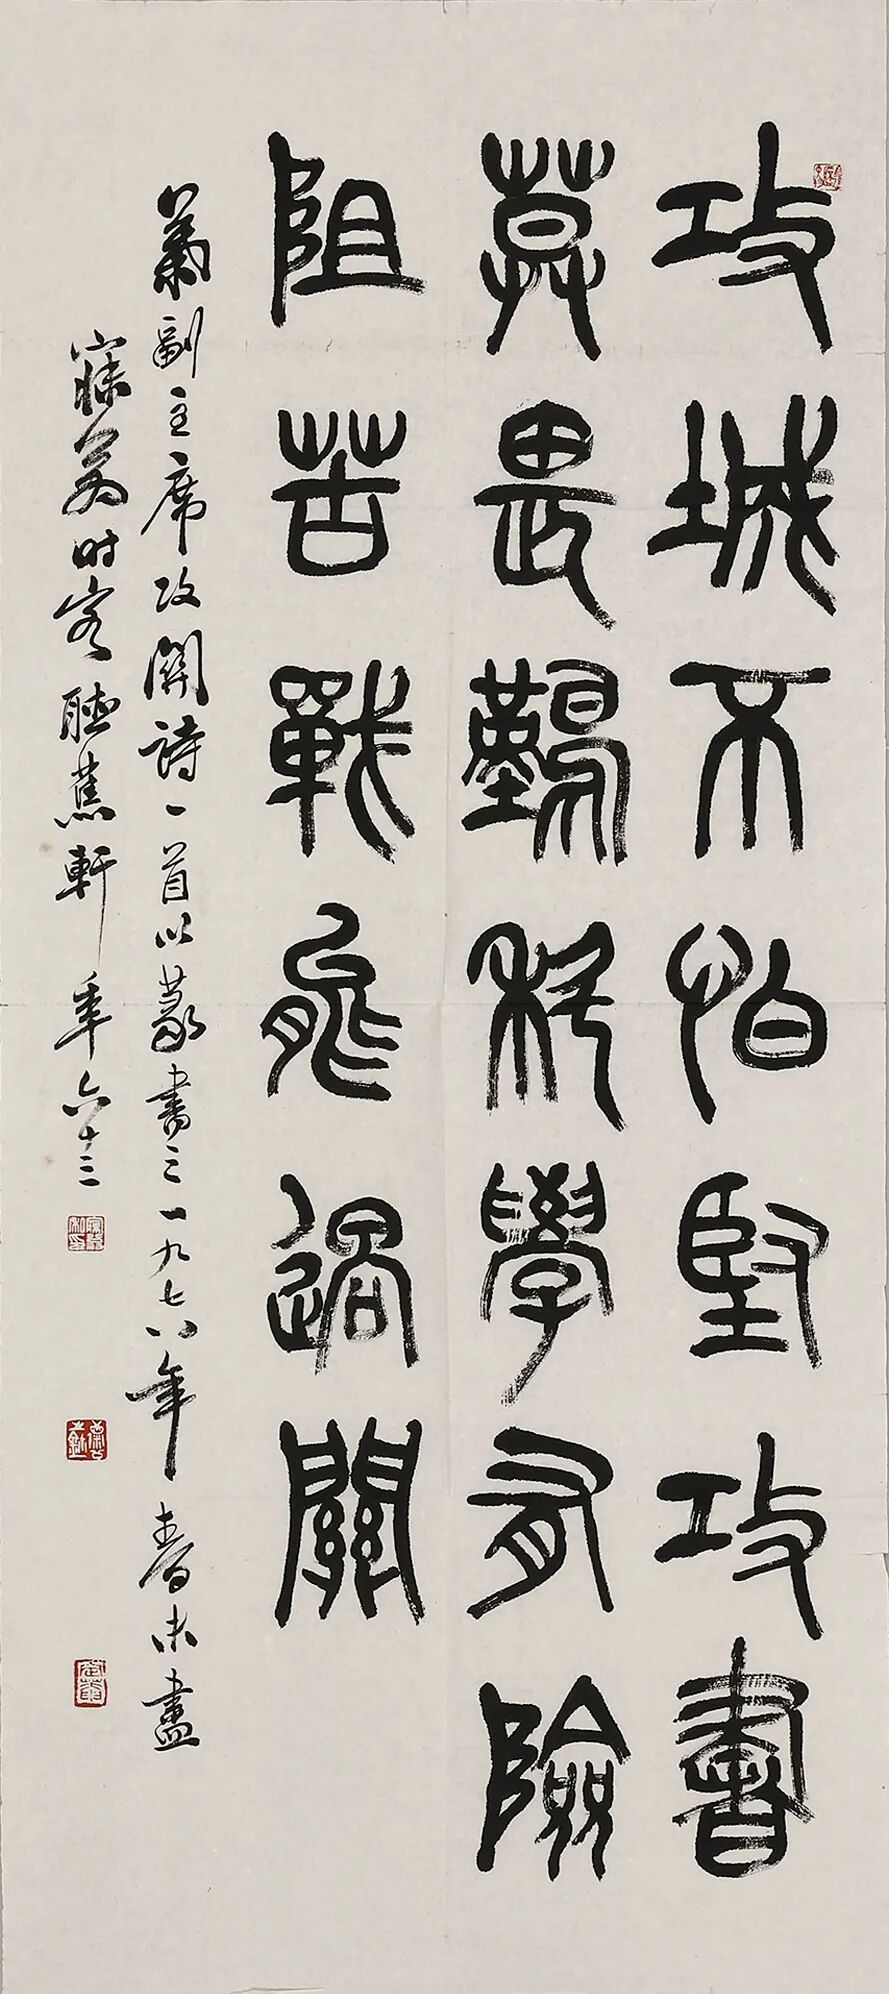 攻城不怕堅攻書
莫畏難科學有險
阻苦戰能過關
葉副主席攻關詩一首以篆書之一九七八年春未盡
寐时客聽蕉軒年六十三